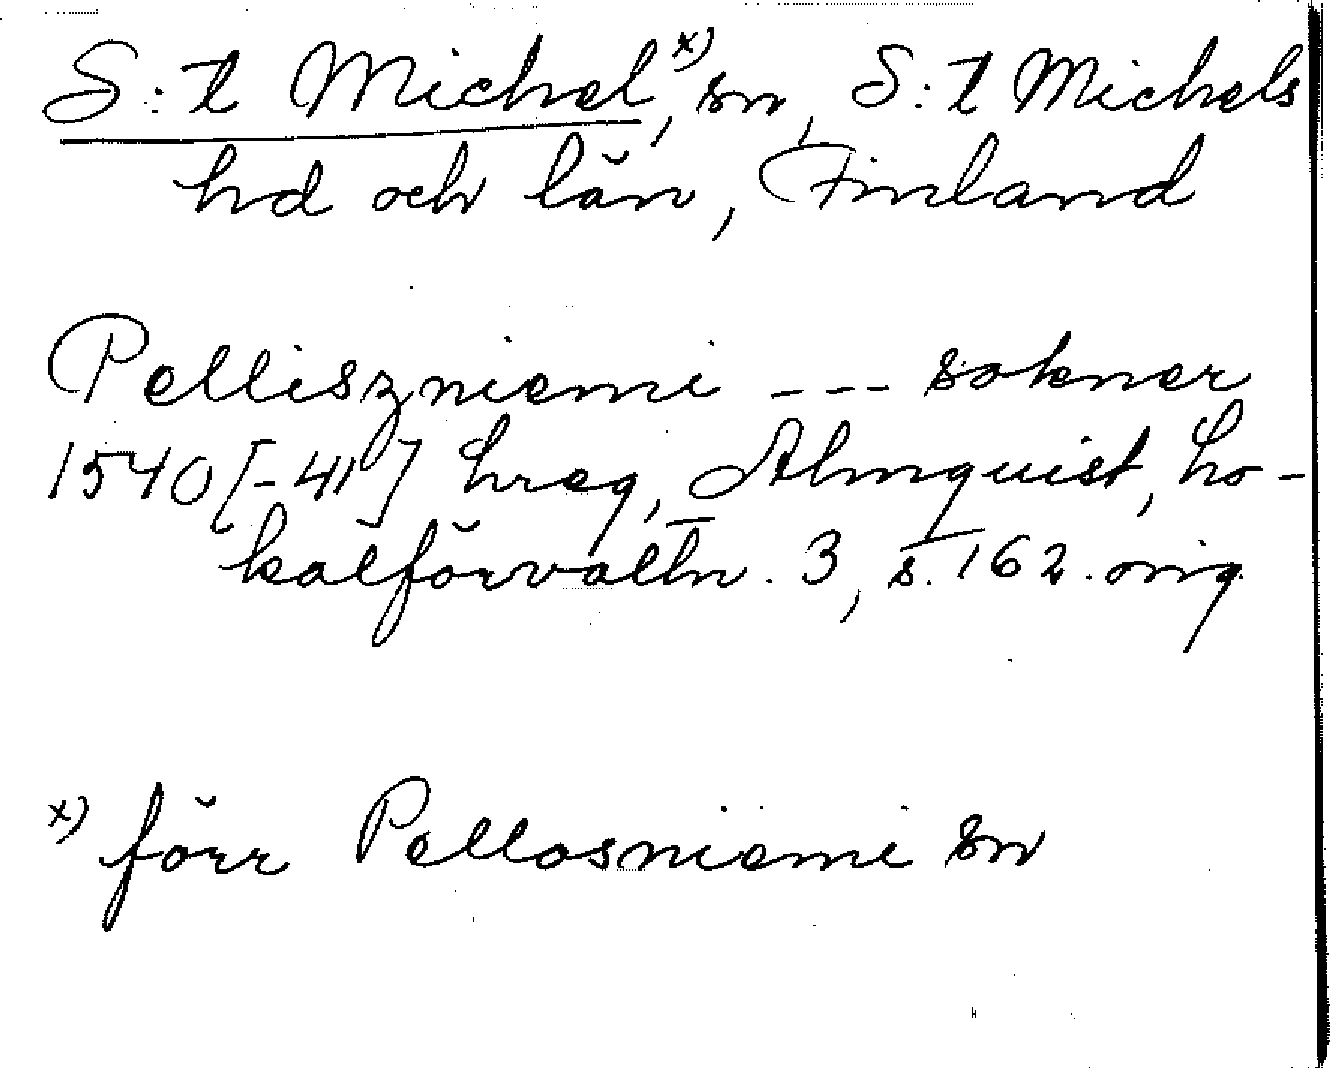 S:t Michel,x) sn, S:t Michels
hd och län, Finland
Pelliszniemi --- sokner
1540[-41] hreg, Almquist, Lo-
kalförvaltn. 3, s. 162. orig.
x) förr Pellosniemi sn